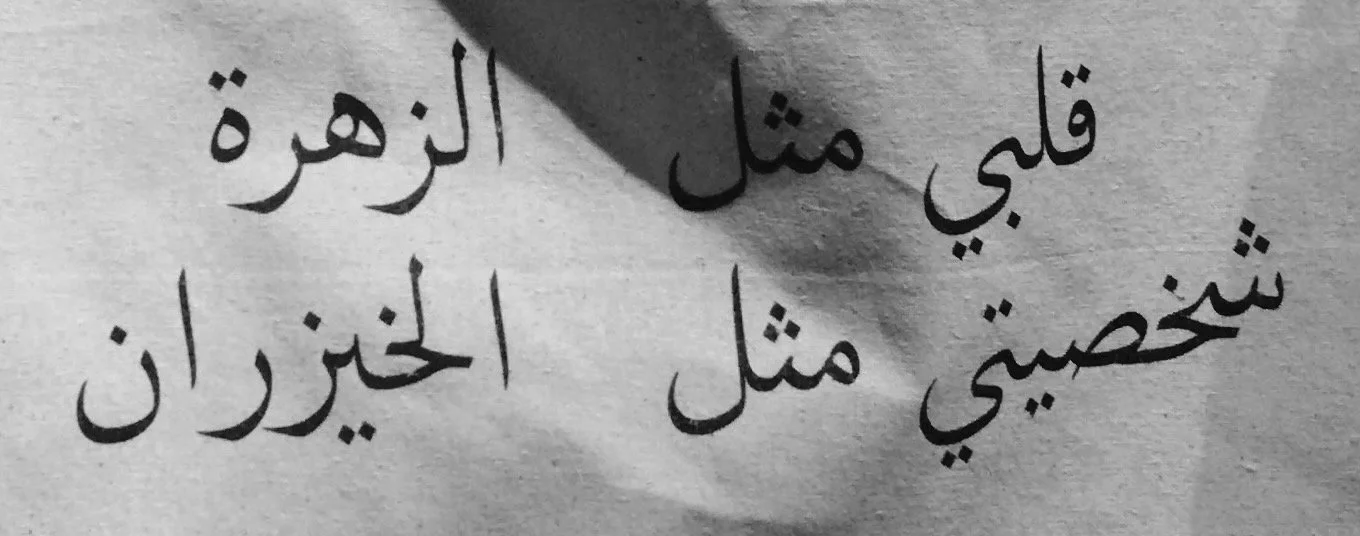 قلبي مثل الزهرة
شخصيتي مثل الخيزران